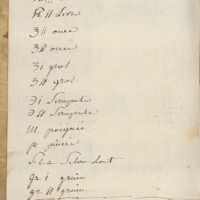 lb ss Livre
℥i once
℥ss once
ʒi gros
ʒss gros
℈i Scrupule
℈ss Scrupule
M. poignée
p. pincée
S.e.a Selon l'art
gr i grain
gr ss grain